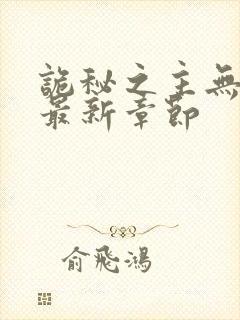 詭秘之主無
最新章節
俞飛鴻